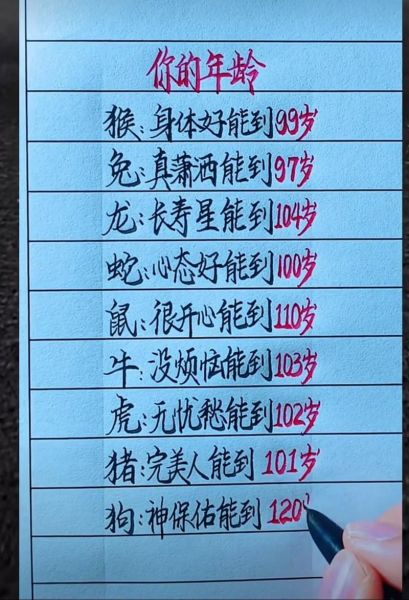 你的年龄
猴:身体好能到99岁
兔:真潇洒能到97岁
龙:长寿星能到104岁
蛇:心态好能到100岁
鼠:很开心能到110岁
牛:没烦恼能到103岁
虎:无忧愁能到102岁
猪:完美人能到101岁
狗:神保佑能到120